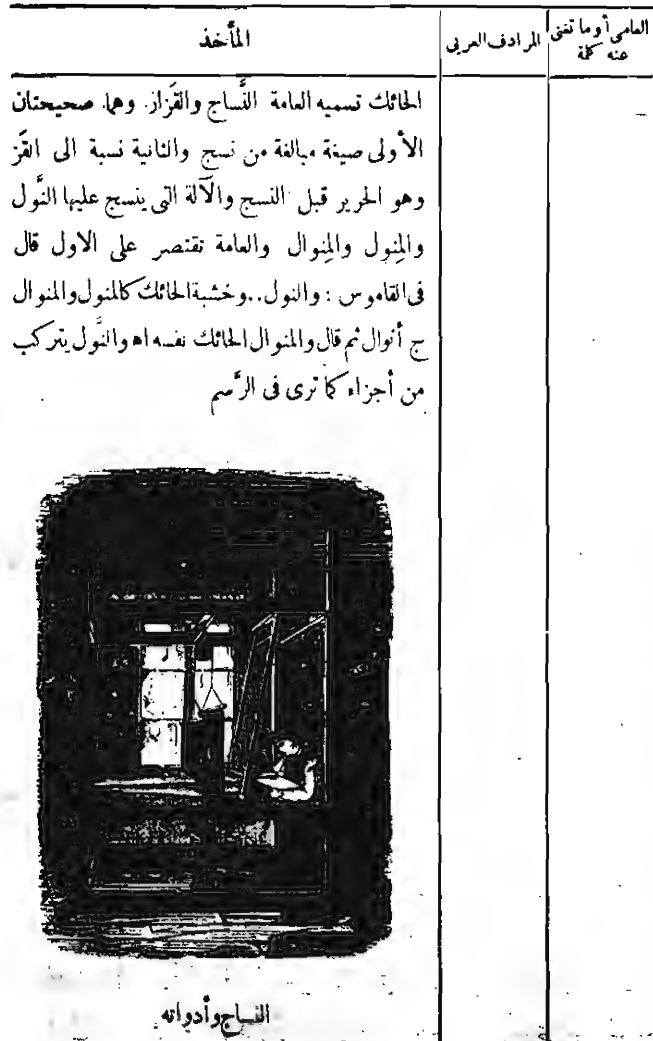 العامى أو ما تغنى عنه كلمة
المرادف العربى
المأخذ
الحائك تسميه العامة النَّساج والقَزاز. وهما صحيحتان
الأولى صيغة مبالغة من نسج والثانية نسبة الى القَز
وهو الحرير قبل النسج والآلة التى ينسج عليها النَّول
والمِنول والمِنوال والعامة تقتصر على الاول قال
فى القاموس : والنول..وخشبة الحائك كالمنول والمنوال
ج أنوال ثم قال والمنوال الحائك نفسه اه والنَّول يتركب
من أجزاء كما ترى فى الرَّسم
النساج وأدواته